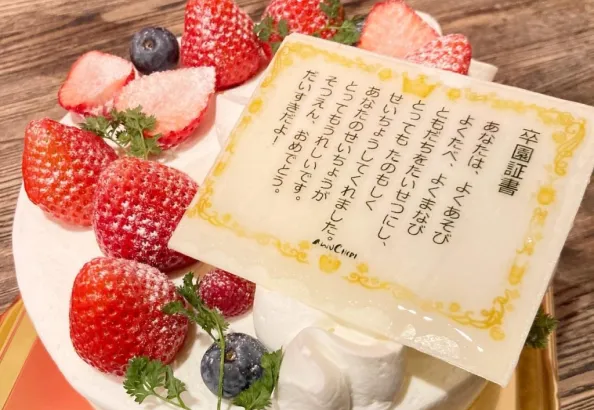 卒園証書
あなたは、よくあそび
よくたべ、よくまなび
ともだちをたいせつにし、
とっても たのもしく
せいちょうしてくれました。
あなたのせいちょうが
とってもうれしいです。
そつえん、おめでとう。
だいすきだよ！